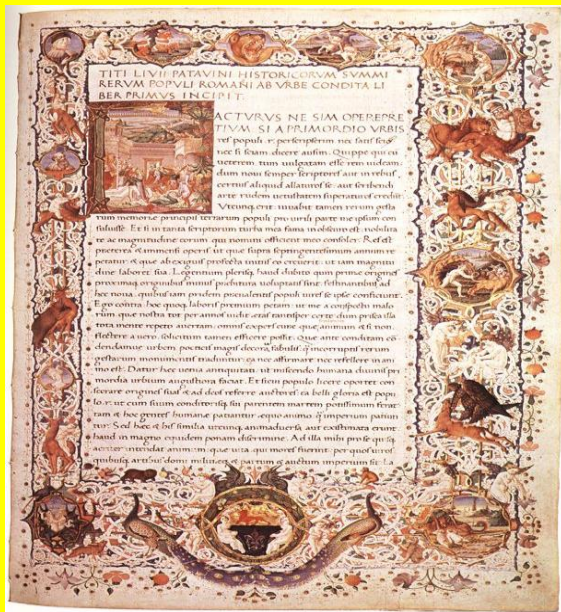 TITI LIVII PATAVINI HISTORICORVM SVMMI
RERVM POPVLI ROMANI AB VRBE CONDITA LI
BER PRIMVS INCIPIT.
ACTVRVS NE SIM OPEREPRE
TIVM SI A PRIMORDIO VRBIS
res populi .r. perscripserim nec satis scio
nec si sciam dicere ausim. Quippe qui cu
ueterem tum uulgatam esse rem uideam:
dum noui semper scriptores aut in rebus
certius aliquid allaturos se: aut scribendi
arte rudem uetustatem superaturos credut
Vtcunq erit: iuuabit tamen rerum gesta
rum memoriæ principis terrarum populi pro uirili parte me ipsum con
suluisse. Et si in tanta scriptorum turba mea fama in obscuro est: nobilita
te ac magnitudine eorum qui nomini officient meo consoler. Res est
præterea immensi operis: ut que supra septingentesimum annum re
petatur: & que ab exiguis profecta initiis eo creuerit: ut iam magnitu
dine laboret sua. Legentium plerisq haud dubito quin prime origines
proximaq originibus minus præbitura uoluptatis sint: festinantibus ad
hec noua: quibus iam pridem preualentis populi uires se ipse conficiunt.
Ego contra hoc quoq laboris premium petam: ut me a conspectu malo
rum que nostra tot per annos uidit etas tantisper certe dum prisca illa
tota mente repeto auertam: omnis expers cure que animum etsi non
flectere a uero: solicitum tamen efficere possit. Que ante conditam co
dendamue urbem poeticis magis decora fabulis: q incorruptis rerum
gestarum monumentis traduntur: ea nec affirmare nec refellere in ani
mo est. Datur hec uenia antiquitati: ut miscendo humana diuinis pri
mordia urbium augustiora faciat. Et si cui populo licere oportet con
secrare origines suas & ad deos referre auctores: ea belli gloria est popu
lo .r. ut cum suum conditorisq sui parentem martem potissimum ferat:
tam & hoc gentes humane patiantur equo animo: q imperium patiun
tur. Sed hec & his similia utcunq animaduersa aut existimata erunt
haud in magno equidem ponam discrimine. Ad illa mihi pro se quisq
acriter intendat animum: que uita qui mores fuerint: per quos uiros
quibusq artibus domi militieq & partum & auctum imperium sit. La